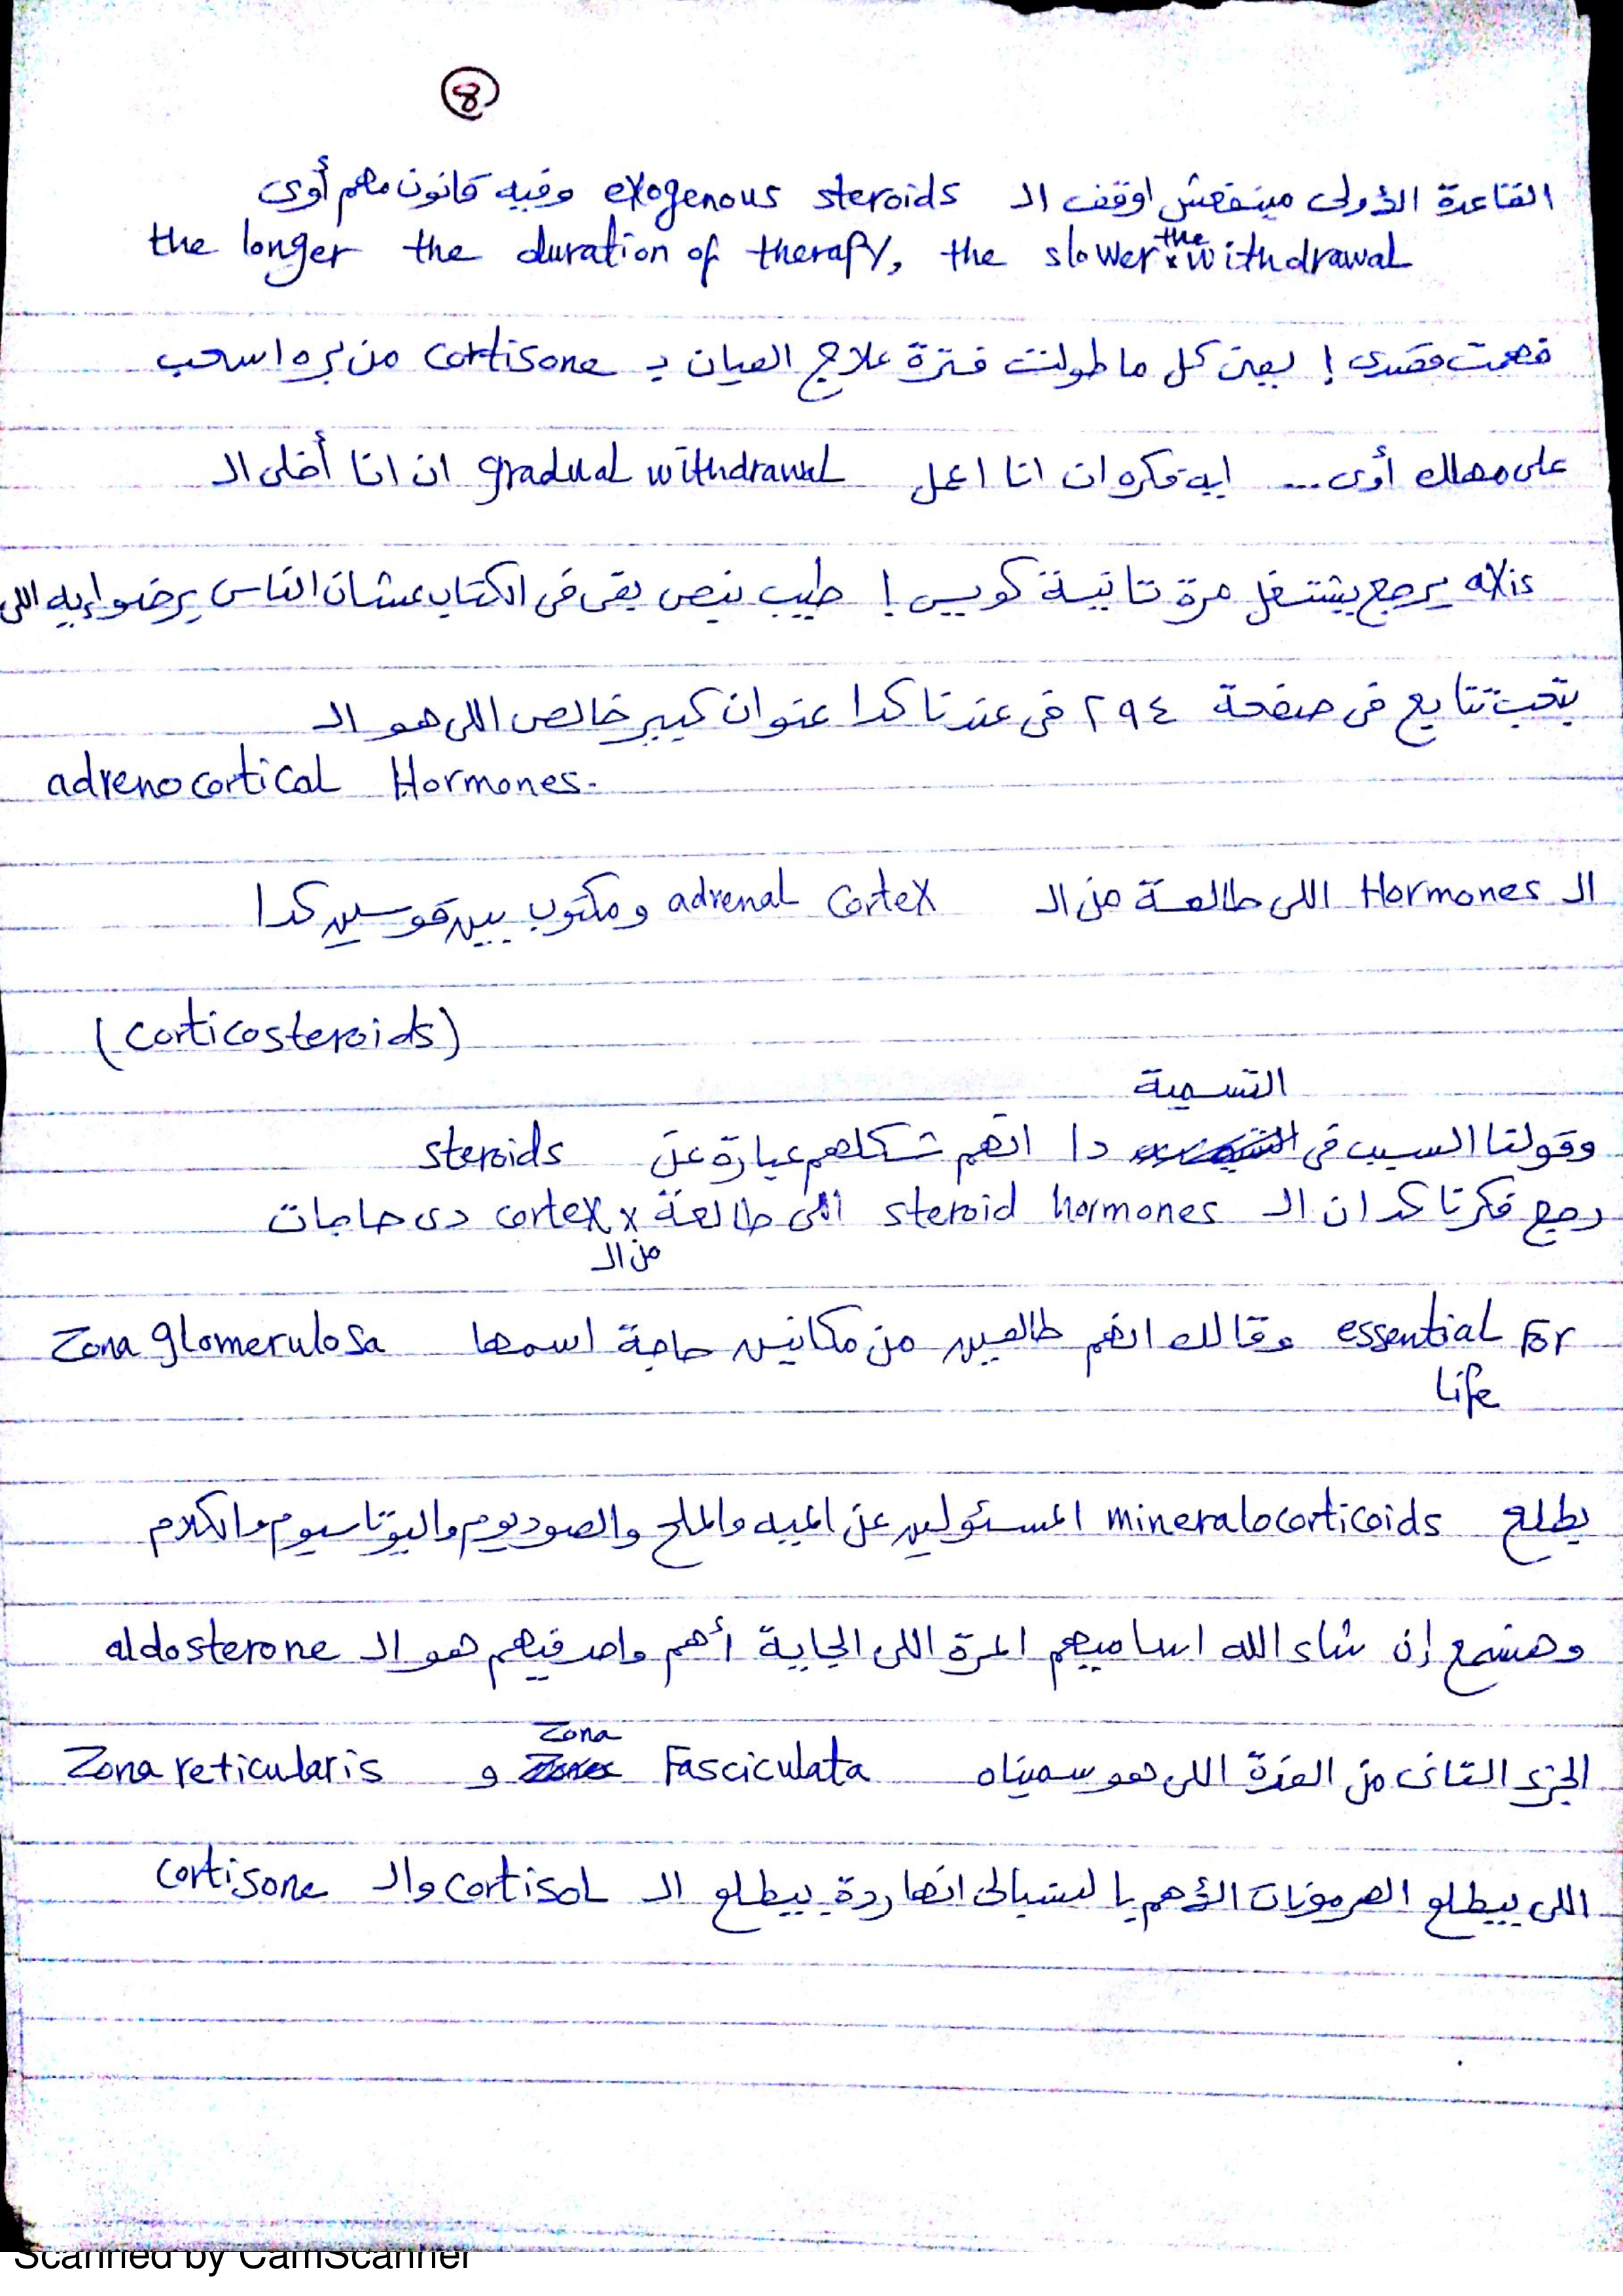 8
القاعدة الأولى مينفعش اوقف ال exogenous steroids وفيه قانون مهم أوى
the longer the duration of therapy, the slower the withdrawal
فهمت قصدى ! يعنى كل ما طولت فترة علاج العيان بـ cortisone من بره اسحب
على مهلك أوى ... ايه فكره ان انا اعمل gradual withdrawal ان انا أخلى ال
axis يرجع يشتغل مرة تانية كويس ! طيب نبص بقى فى الكتاب عشان الناس برضوا إيه اللى
بتحب تتابع فى صفحة ٢٩٤ فى عندنا كدا عنوان كبير خالص اللى هو ال
adrenocortical Hormones.
ال Hormones اللى طالعة من ال adrenal cortex ومكتوب بين قوسين كدا
(corticosteroids)
وقولنا السبب فى التسمية دا انهم شكلهم عبارة عن steroids
رجع فكرنا كد ان ال steroid hormones اللى طالعة من ال cortex دى حاجات
essential For وقالك انهم طالعين من مكانين حاجة اسمها Zona glomerulosa
Life
يطلع mineralocorticoids المسئولين عن المية والملح والصوديوم والبوتاسيوم والكلام
وهنسمع إن شاء الله اساميهم المرة اللى الجاية أهم واحد فيهم هو ال aldosterone
الجزء التانى من الغدة اللى هو سميناه Zona Fasciculata و Zona reticularis
اللى بيطلع الهرمونات الأهم بالنسبالى انهاردة بيطلع ال cortisol وال cortisone
Scanned by CamScanner